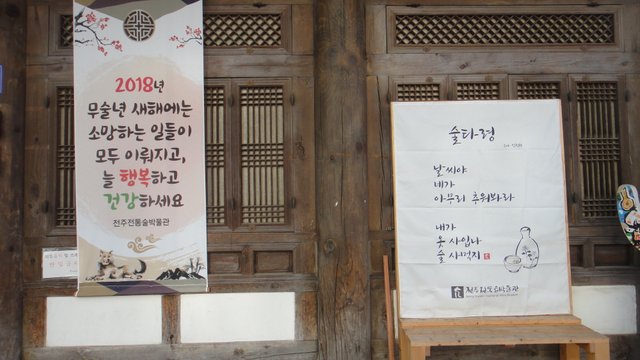 2018년
무술년 새해에는
소망하는 일들이
모두 이뤄지고,
늘 행복하고
건강하세요
전주전통술박물관
술타령
날씨야
네가
아무리 추워봐라
내가
옷 사입나
술 사먹지
전주전통술박물관